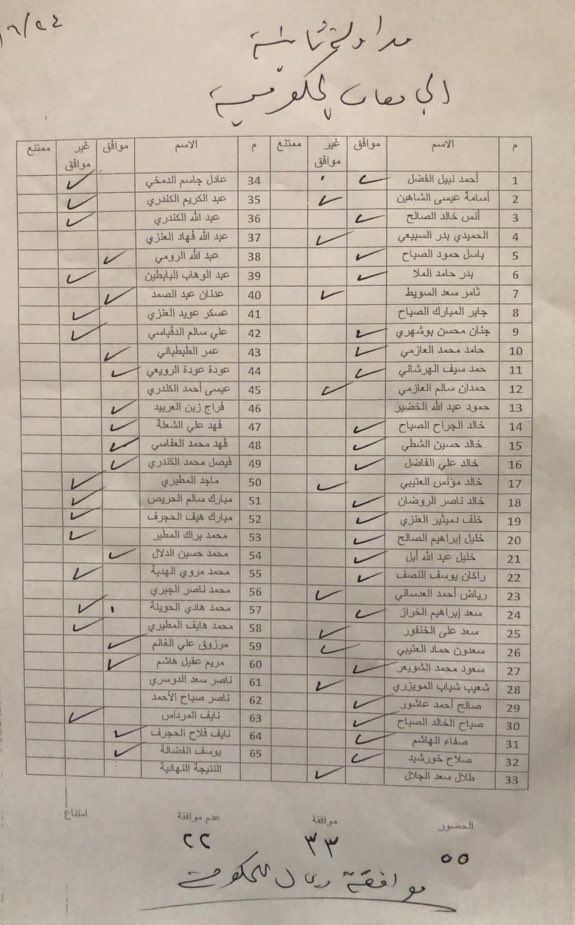 ٦/٢٤
مداولة ثانية
الجامعات الحكومية
م الاسم موافق غير موافق ممتنع م الاسم موافق غير موافق ممتنع
1 أحمد نبيل الفضل ✓ 34 عادل جاسم الدمخي ✓
2 أسامة عيسى الشاهين ✓ 35 عبد الكريم الكندري ✓
3 أنس خالد الصالح ✓ 36 عبد الله الكندري ✓
4 الحميدي بدر السبيعي ✓ 37 عبد الله فهاد العنزي
5 باسل حمود الصباح ✓ 38 عبد الله الرومي ✓
6 بدر حامد الملا ✓ 39 عبد الوهاب البابطين ✓
7 ثامر سعد السويط ✓ 40 عدنان عبد الصمد ✓
8 جابر المبارك الصباح 41 عسكر عويد العنزي ✓
9 جنان محسن بوشهري ✓ 42 علي سالم الدقباسي ✓
10 حامد محمد العازمي ✓ 43 عمر الطبطبائي ✓
11 حمد سيف الهرشاني ✓ 44 عودة عودة الرويعي ✓
12 حمدان سالم العازمي ✓ 45 عيسى أحمد الكندري
13 حمود عبد الله الخضير 46 فراج زبن العربيد ✓
14 خالد الجراح الصباح ✓ 47 فهد علي الشعلة ✓
15 خالد حسين الشطي ✓ 48 فهد محمد العفاسي ✓
16 خالد علي الفاضل ✓ 49 فيصل محمد الكندري ✓
17 خالد مؤنس العتيبي ✓ 50 ماجد المطيري ✓
18 خالد ناصر الروضان ✓ 51 مبارك سالم الحريص ✓
19 خلف دميثير العنزي ✓ 52 مبارك هيف الحجرف ✓
20 خليل إبراهيم الصالح ✓ 53 محمد براك المطير ✓
21 خليل عبد الله أبل ✓ 54 محمد حسين الدلال ✓
22 راكان يوسف النصف ✓ 55 محمد مروي الهدية ✓
23 رياض أحمد العدساني ✓ 56 محمد ناصر الجبري
24 سعد إبراهيم الخراز ✓ 57 محمد هادي الحويلة ✓
25 سعد على الخنفور ✓ 58 محمد هايف المطيري ✓
26 سعدون حماد العتيبي ✓ 59 مرزوق علي الغانم ✓
27 سعود محمد الشويعر ✓ 60 مريم عقيل هاشم ✓
28 شعيب شباب المويزري ✓ 61 ناصر سعد الدوسري
29 صالح أحمد عاشور ✓ 62 ناصر صباح الأحمد
30 صباح الخالد الصباح ✓ 63 نايف المرداس ✓
31 صفاء الهاشم ✓ 64 نايف فلاح الحجرف ✓
32 صلاح خورشيد ✓ 65 يوسف الفضالة ✓
33 طلال سعد الجلال ✓ النتيجة النهائية
الحضور موافقة عدم موافقة امتناع
٥٥ ٣٣ ٢٢
موافقة ويحال للحكومة